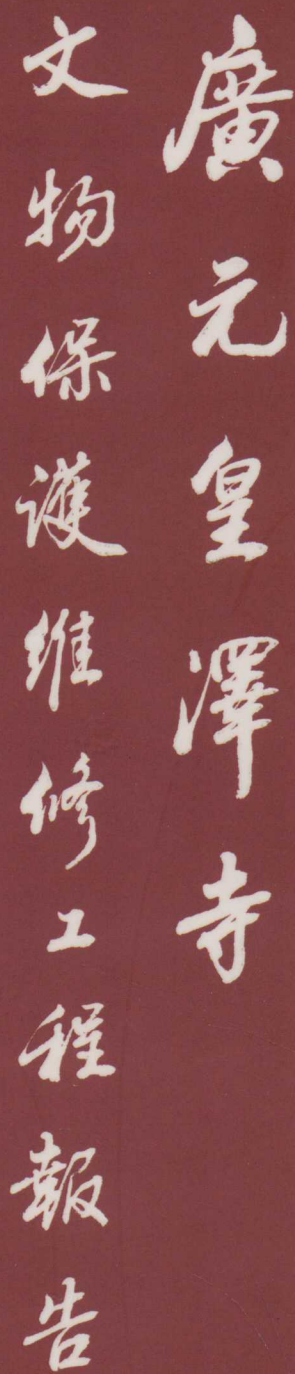 廣元皇澤寺
文物保護維修工程報告